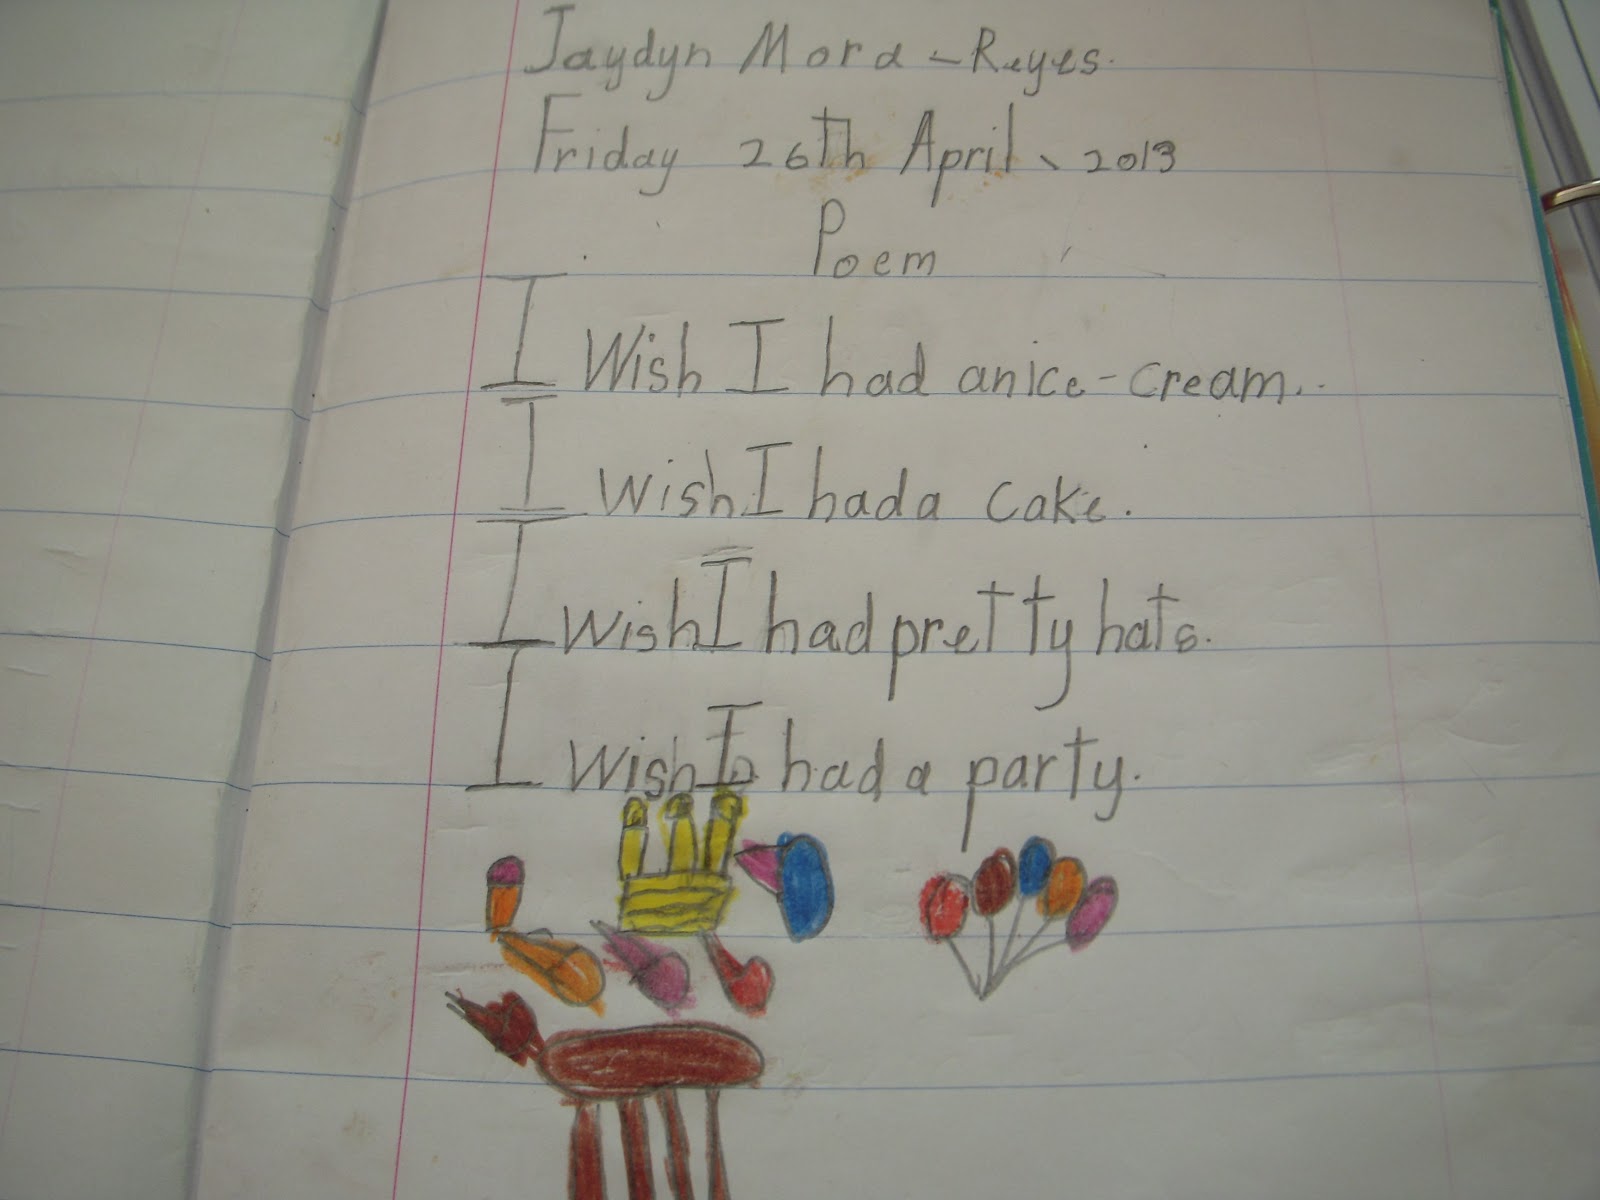 Jaydyn Mora-Reyes.
Friday 26th April, 2013
Poem
I Wish I had an ice-cream.
I wish I had a cake.
I wish I had pretty hats.
I wish I had a party.